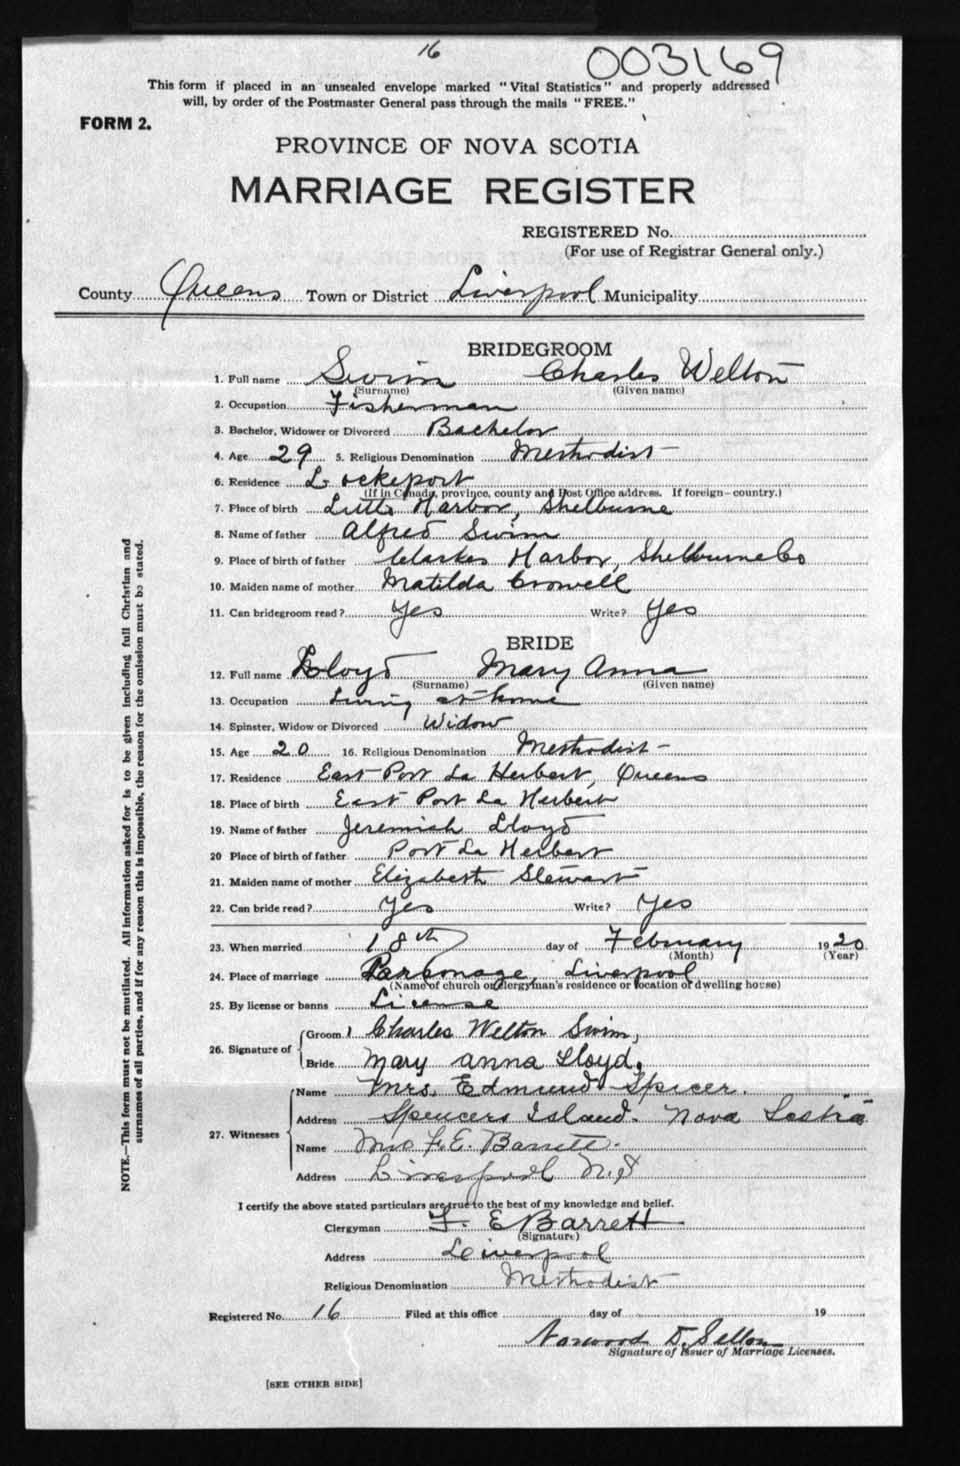 16
003169
This form if placed in an unsealed envelope marked "Vital Statistics" and properly addressed
will, by order of the Postmaster General pass through the mails "FREE."
FORM 2.
PROVINCE OF NOVA SCOTIA
MARRIAGE REGISTER
REGISTERED No.
(For use of Registrar General only.)
County Queens Town or District Liverpool Municipality
BRIDEGROOM
1. Full name Swim Charles Welton
(Surname) (Given name)
2. Occupation Fisherman
3. Bachelor, Widower or Divorced Bachelor
4. Age 29 5. Religious Denomination Methodist
6. Residence Lockeport
(If in Canada, province, county and Post Office address. If foreign—country.)
7. Place of birth Little Harbor, Shelburne
8. Name of father Alfred Swim
9. Place of birth of father Clarkes Harbor, Shelburne Co
10. Maiden name of mother Matilda Crowell
11. Can bridegroom read? Yes Write? Yes
BRIDE
12. Full name Lloyd Mary Anna
(Surname) (Given name)
13. Occupation Living at home
14. Spinster, Widow or Divorced Widow
15. Age 20 16. Religious Denomination Methodist
17. Residence East Port La Herbert, Queens
18. Place of birth East Port La Herbert
19. Name of father Jeremiah Lloyd
20 Place of birth of father Port La Herbert
21. Maiden name of mother Elizabeth Stewart
22. Can bride read? Yes Write? Yes
23. When married 18th day of February 1920
(Month) (Year)
24. Place of marriage Parsonage, Liverpool
(Name of church or clergyman's residence or location of dwelling house)
25. By license or banns License
26. Signature of Groom Charles Welton Swim,
Bride Mary Anna Lloyd.
27. Witnesses Name Mrs. Edmund Spicer.
Address Spencers Island. Nova Scotia
Name Mrs F. E. Barrett.
Address Liverpool N.S
I certify the above stated particulars are true to the best of my knowledge and belief.
Clergyman F. E Barrett
(Signature)
Address Liverpool
Religious Denomination Methodist
Registered No. 16 Filed at this office day of 19
Norwood D. Sellon
Signature of Issuer of Marriage Licenses.
[SEE OTHER SIDE]
NOTE.—This form must not be mutilated. All information asked for is to be given including full Christian and
surnames of all parties, and if for any reason this is impossible, the reason for the omission must be stated.